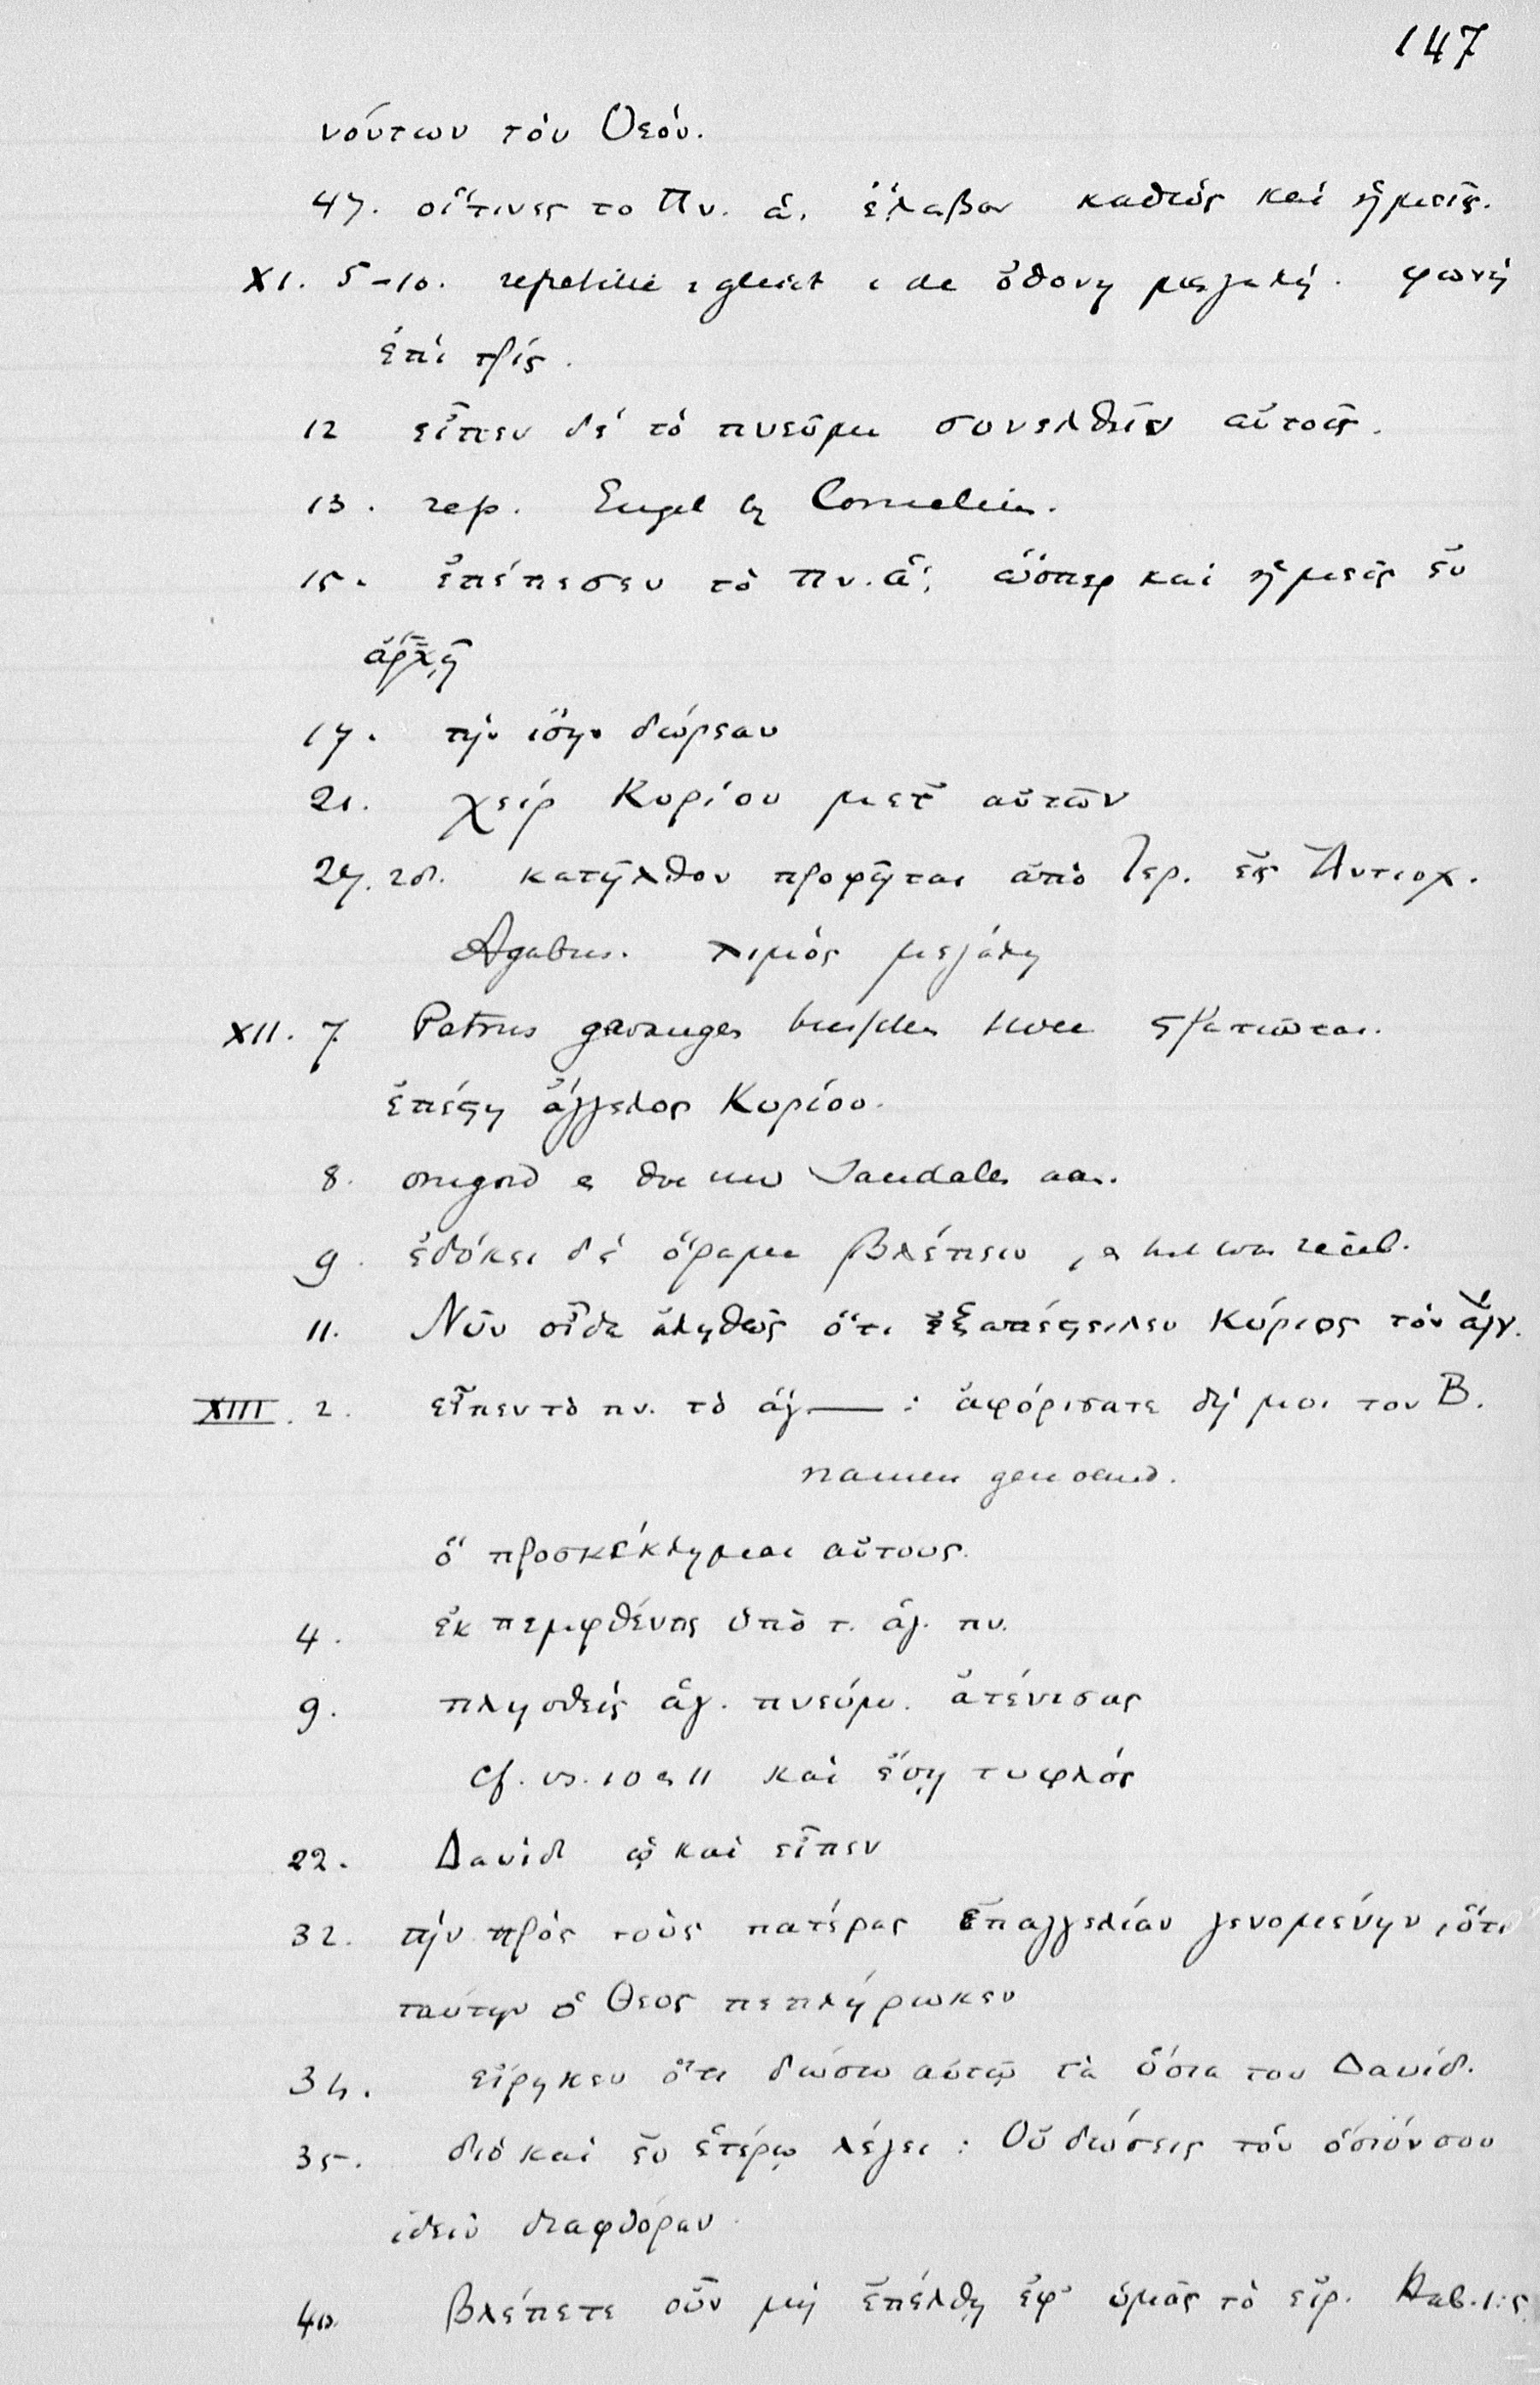 147
νούντων τὸν Θεόν.
47. οἵτινες το Πν. ἁ. ἔλαβον καθὼς καὶ ἡμεῖς.
XI. 5-10. repetitie v gezicht v de ὀθονη μεγαλή. φωνὴ
ἐπὶ τρίς.
12 εἶπεν δὲ τὸ πνεῦμα συνελθεῖν αὐτοῖς.
13. rep. Engel bij Cornelius.
15. ἐπέπεσεν τὸ Πν. ἁ; ὥσπερ καὶ ἡμεῖς ἐν
ἀρχῇ
17. τὴν ἴσην δώρεαν
21. χεὶρ Κυρίου μετ' αὐτῶν
27. 28. κατῆλθον προφῆται ἀπὸ Ἰερ. εἰς Ἀντιοχ.
Agabus. λιμὸς μεγάλη
XII. 7. Petrus gevangen tusschen twee στρατιῶται.
ἐπέστη ἄγγελος Κυρίου.
8. omgord u doe uw Sandalen aan.
9. ἐδόκει δὲ ὅραμα βλέπειν, het was
11. Νῦν οἶδα ἀληθῶς ὅτι ἐξαπέστειλεν Κύριος τὸν ἄγγ.
XIII. 2. εἶπεν τὸ πν. τὸ ἁγ— : ἀφόρισατε δή μοι τον Β.
namen genoemd.
ὃ προσκέκλημαι αὐτους.
4. ἐκπεμφθέντες ὑπὸ τ. ἁγ. πν.
9. πλησθεὶς ἁγ. πνεύμ. ἀτένισας
cf. vs. 10 & 11 καὶ ἔσῃ τυφλός
22. Δαυίδ ᾧ καὶ εἶπεν
32. τὴν πρὸς τοὺς πατέρας ἐπαγγελίαν γενομένην, ὅτι
ταύτην ὁ Θεος πεπλήρωκεν
34. εἴρηκεν ὅτι δώσω αὐτῷ τὰ ὅσια του Δαυίδ.
35. διὸ καὶ ἐν ἑτέρῳ λέγει : Οὐ δώσεις τὸν ὁσιόν σου
ἰδεῖν διαφθόραν.
40. βλέπετε οὖν μὴ ἐπέλθῃ ἐφ' ὑμᾶς τὸ εἰρ. Hab. 1:5.